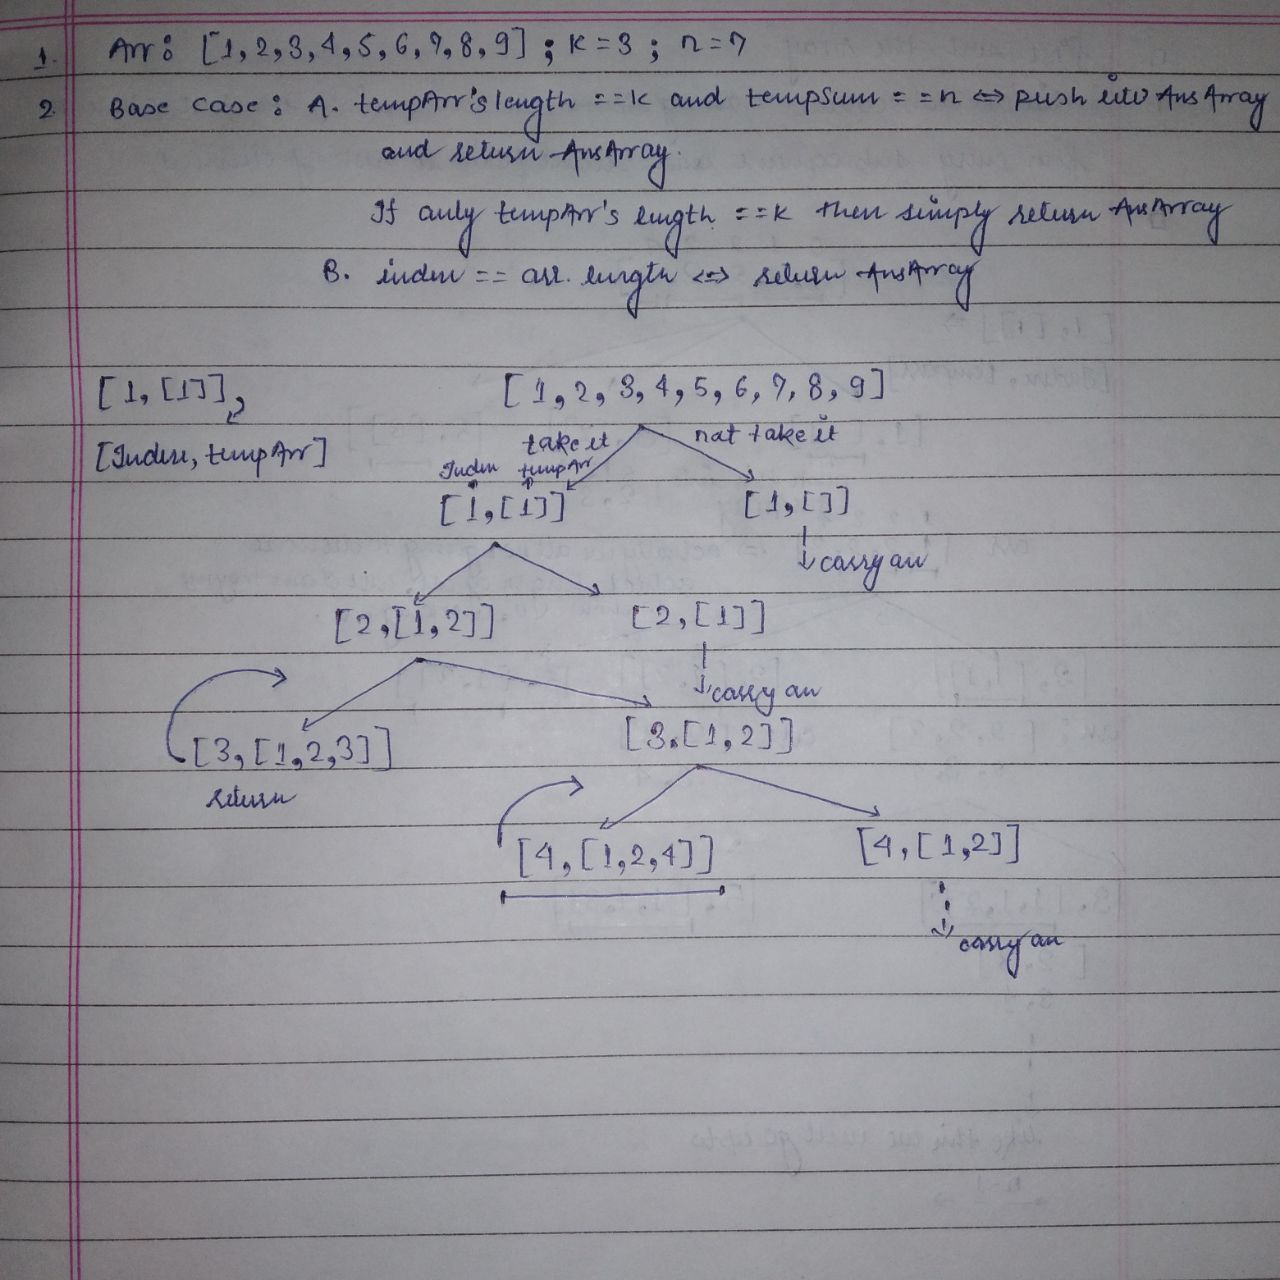 1. Arr: [1,2,3,4,5,6,7,8,9] ; K=3 ; n=7
2. Base case: A. tempArr's length ==k and tempSum ==n <=> push into AnsArray
and return AnsArray.
If only tempArr's length ==K then simply return AnsArray
B. index == arr.length <=> return AnsArray
[1,[1]], [1,2,3,4,5,6,7,8,9]
take it not take it
[Index, tempArr] Index tempArr
[1,[1]] [1,[]]
carry on
[2,[1,2]] [2,[1]]
carry on
[3,[1,2,3]] [3,[1,2]]
return
[4,[1,2,4]] [4,[1,2]]
carry on